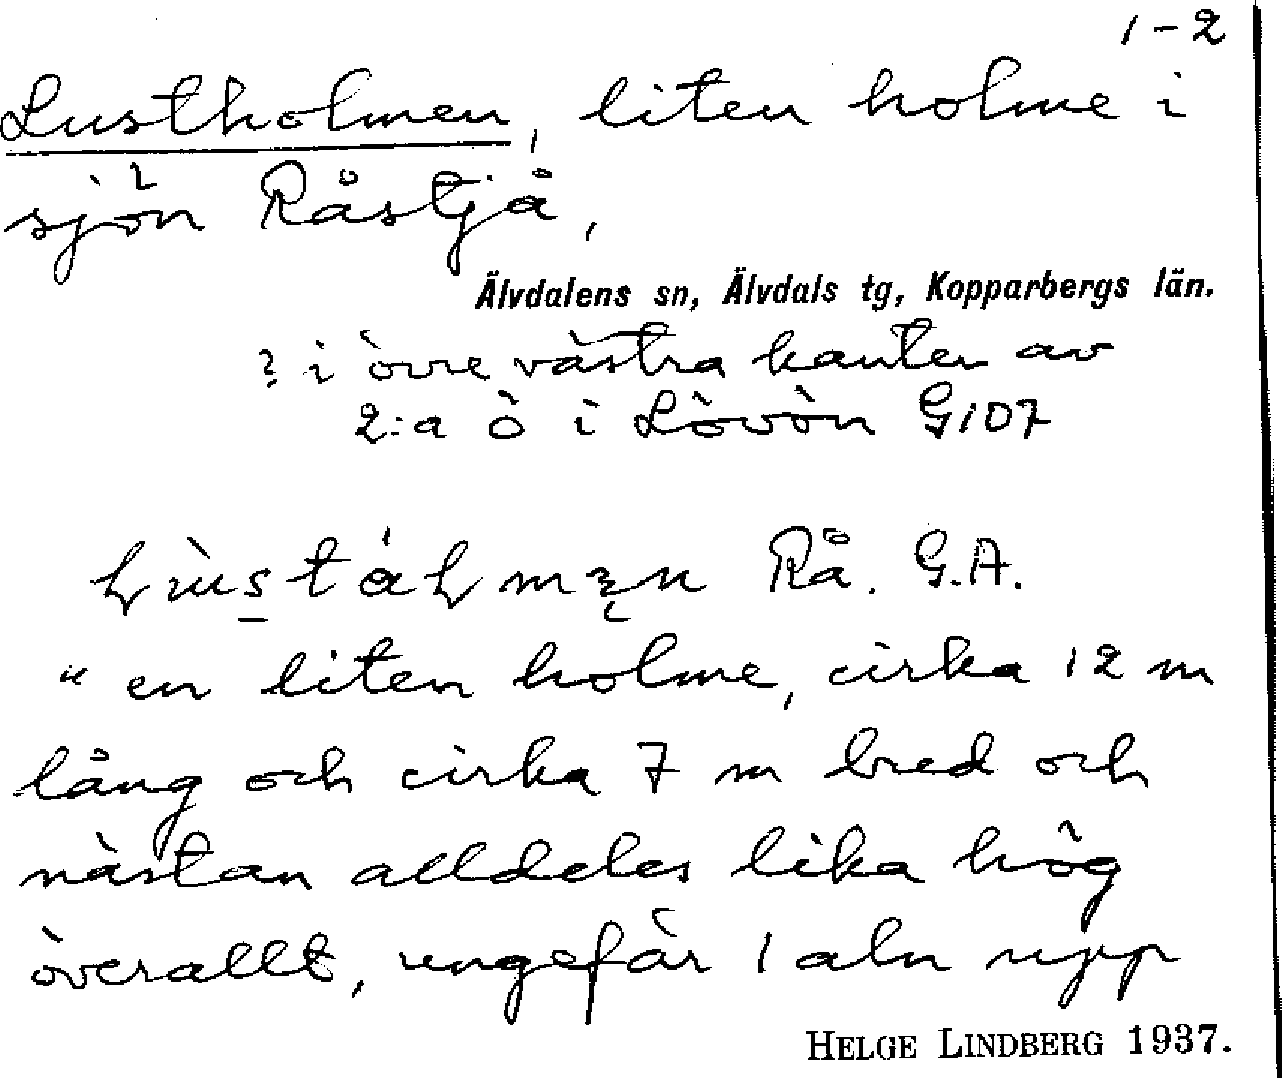 1-2
Lustholmen, liten holme i
sjön Råstjå,
Älvdalens sn, Älvdals tg, Kopparbergs län.
? i övre västra kanten av
2:a ö i Lövön G107
Rå. G.A.
"en liten holme, cirka 12 m
lång och cirka 7 m bred och
nästan alldeles lika hög
överallt, ungefär 1 aln upp
HELGE LINDBERG 1937.